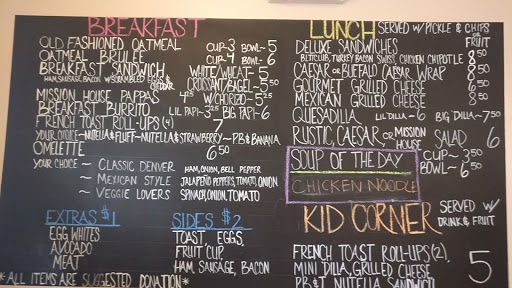 BREAKFAST
OLD FASHIONED OATMEAL CUP-3 BOWL-5
OATMEAL BRULEE CUP-4 BOWL-6
BREAKFAST SANDWICH WHITE/WHEAT-5
HAM, SAUSAGE, BACON W/SCRAMBLED EGGS & CHEDDAR CROISSANT/BAGEL-5.50
MISSION HOUSE PAPPAS 4.75 W/CHORIZO-5.25
BREAKFAST BURRITO LIL PAPI-3.25 BIG PAPI-6
FRENCH TOAST ROLL-UPS (4) 7
YOUR CHOICE~NUTELLA & FLUFF~NUTELLA & STRAWBERRY~PB & BANANA
OMELETTE 6.50
YOUR CHOICE ~ CLASSIC DENVER HAM, ONION, BELL PEPPER
~ MEXICAN STYLE JALAPEÑO PEPPERS, TOMATO, ONION
~ VEGGIE LOVERS SPINACH, ONION, TOMATO
EXTRAS $1
EGG WHITES
AVOCADO
MEAT
SIDES $2
TOAST, EGGS,
FRUIT CUP,
HAM, SAUSAGE, BACON
*ALL ITEMS ARE SUGGESTED DONATION*
LUNCH SERVED W/ PICKLE & CHIPS OR FRUIT
DELUXE SANDWICHES 8.50
BLT, CLUB, TURKEY BACON SWISS, CHICKEN CHIPOTLE
CAESAR OR BUFFALO CAESAR WRAP 8.50
GOURMET GRILLED CHEESE 8
MEXICAN GRILLED CHEESE 8.50
QUESADILLA LIL DILLA-6 BIG DILLA-7.50
RUSTIC, CAESAR OR MISSION HOUSE SALAD 6
SOUP OF THE DAY CUP-3.50
CHICKEN NOODLE BOWL-6.50
KID CORNER SERVED W/ DRINK & FRUIT
FRENCH TOAST ROLL-UPS (2), 5
MINI DILLA, GRILLED CHEESE
PB&J, NUTELLA SANDWICH